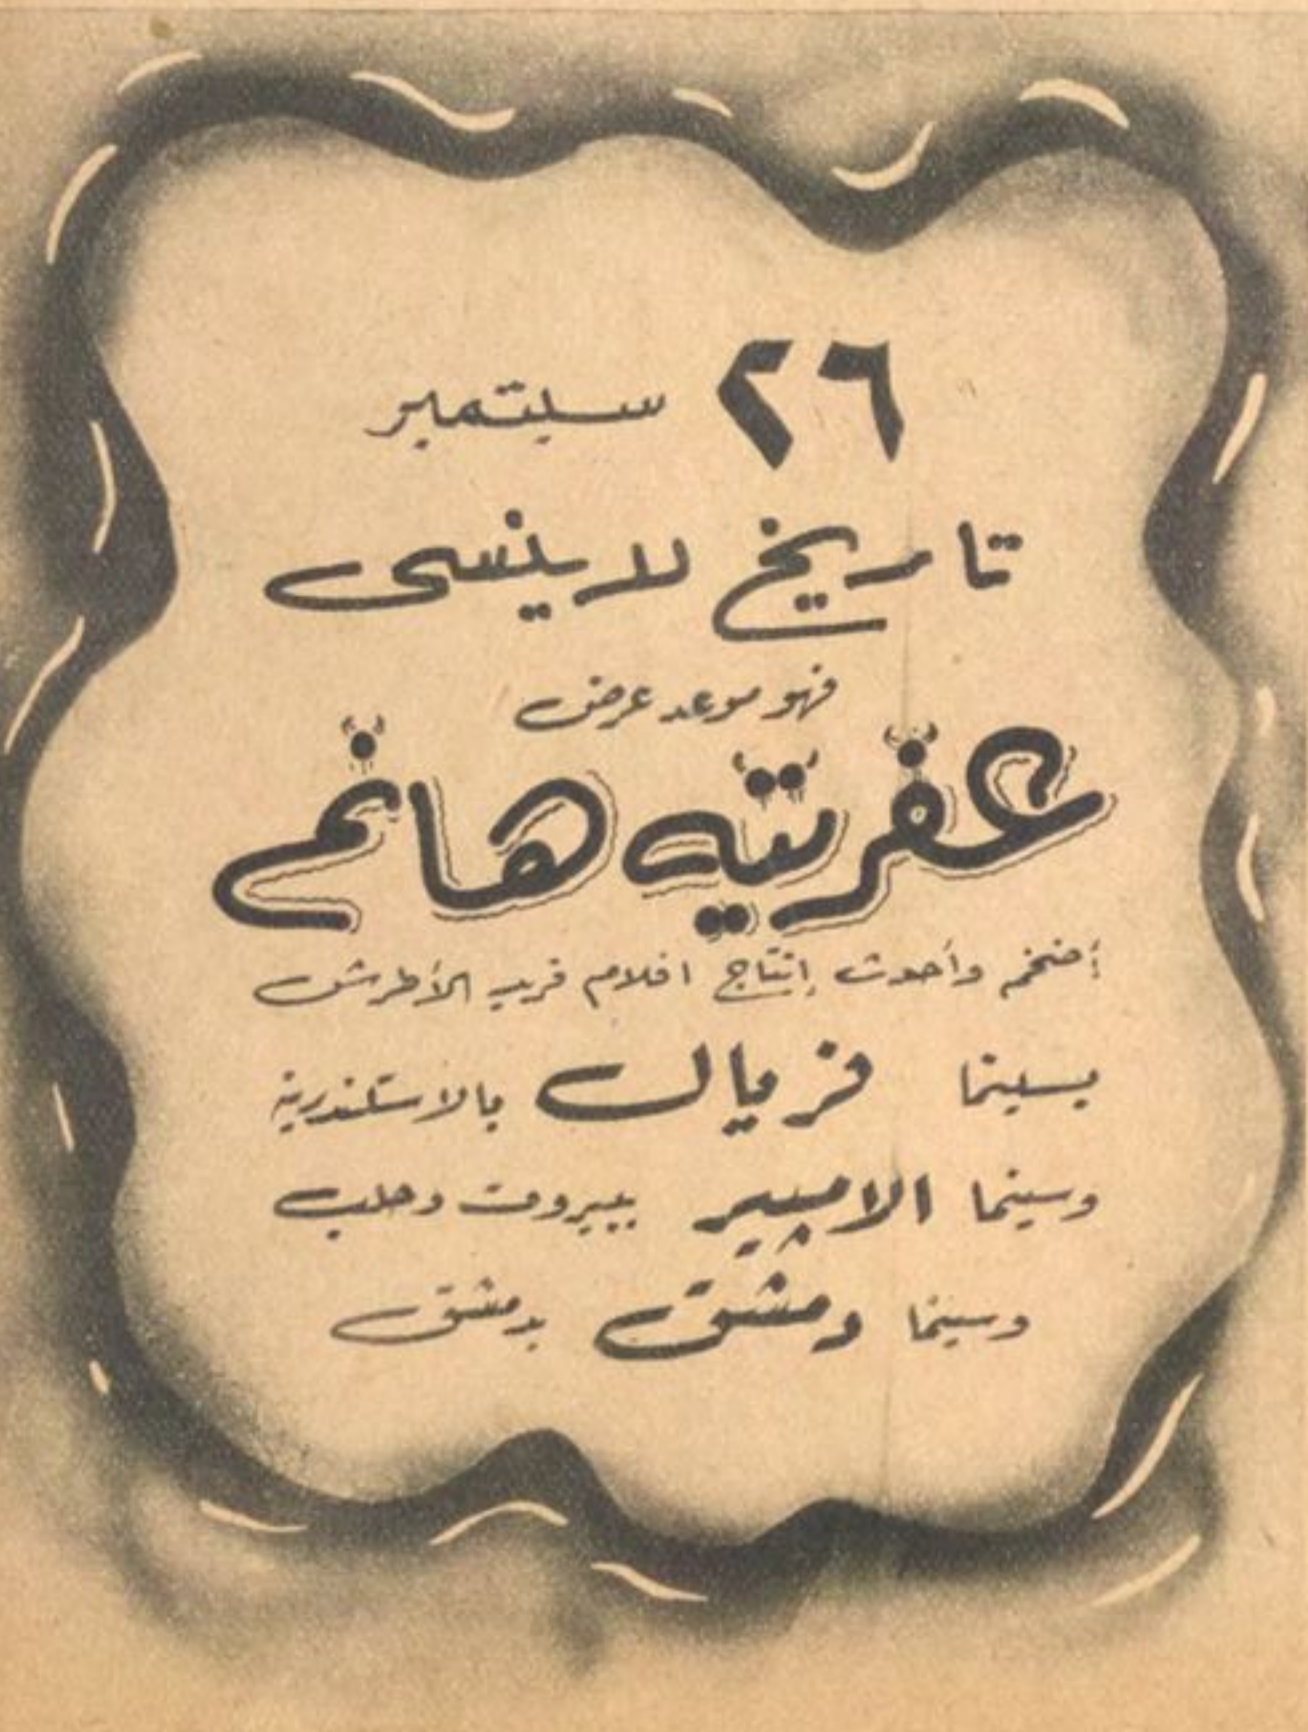 ٢٦ سبتمبر
تاريخ لا ينسى
فهو موعد عرض
عفريته هانم
أضخم وأحدث إنتاج افلام فريد الأطرش
بسينما فريال بالاسكندرية
وسينما الامبير ببيروت وحلب
وسينما دمشق بدمشق